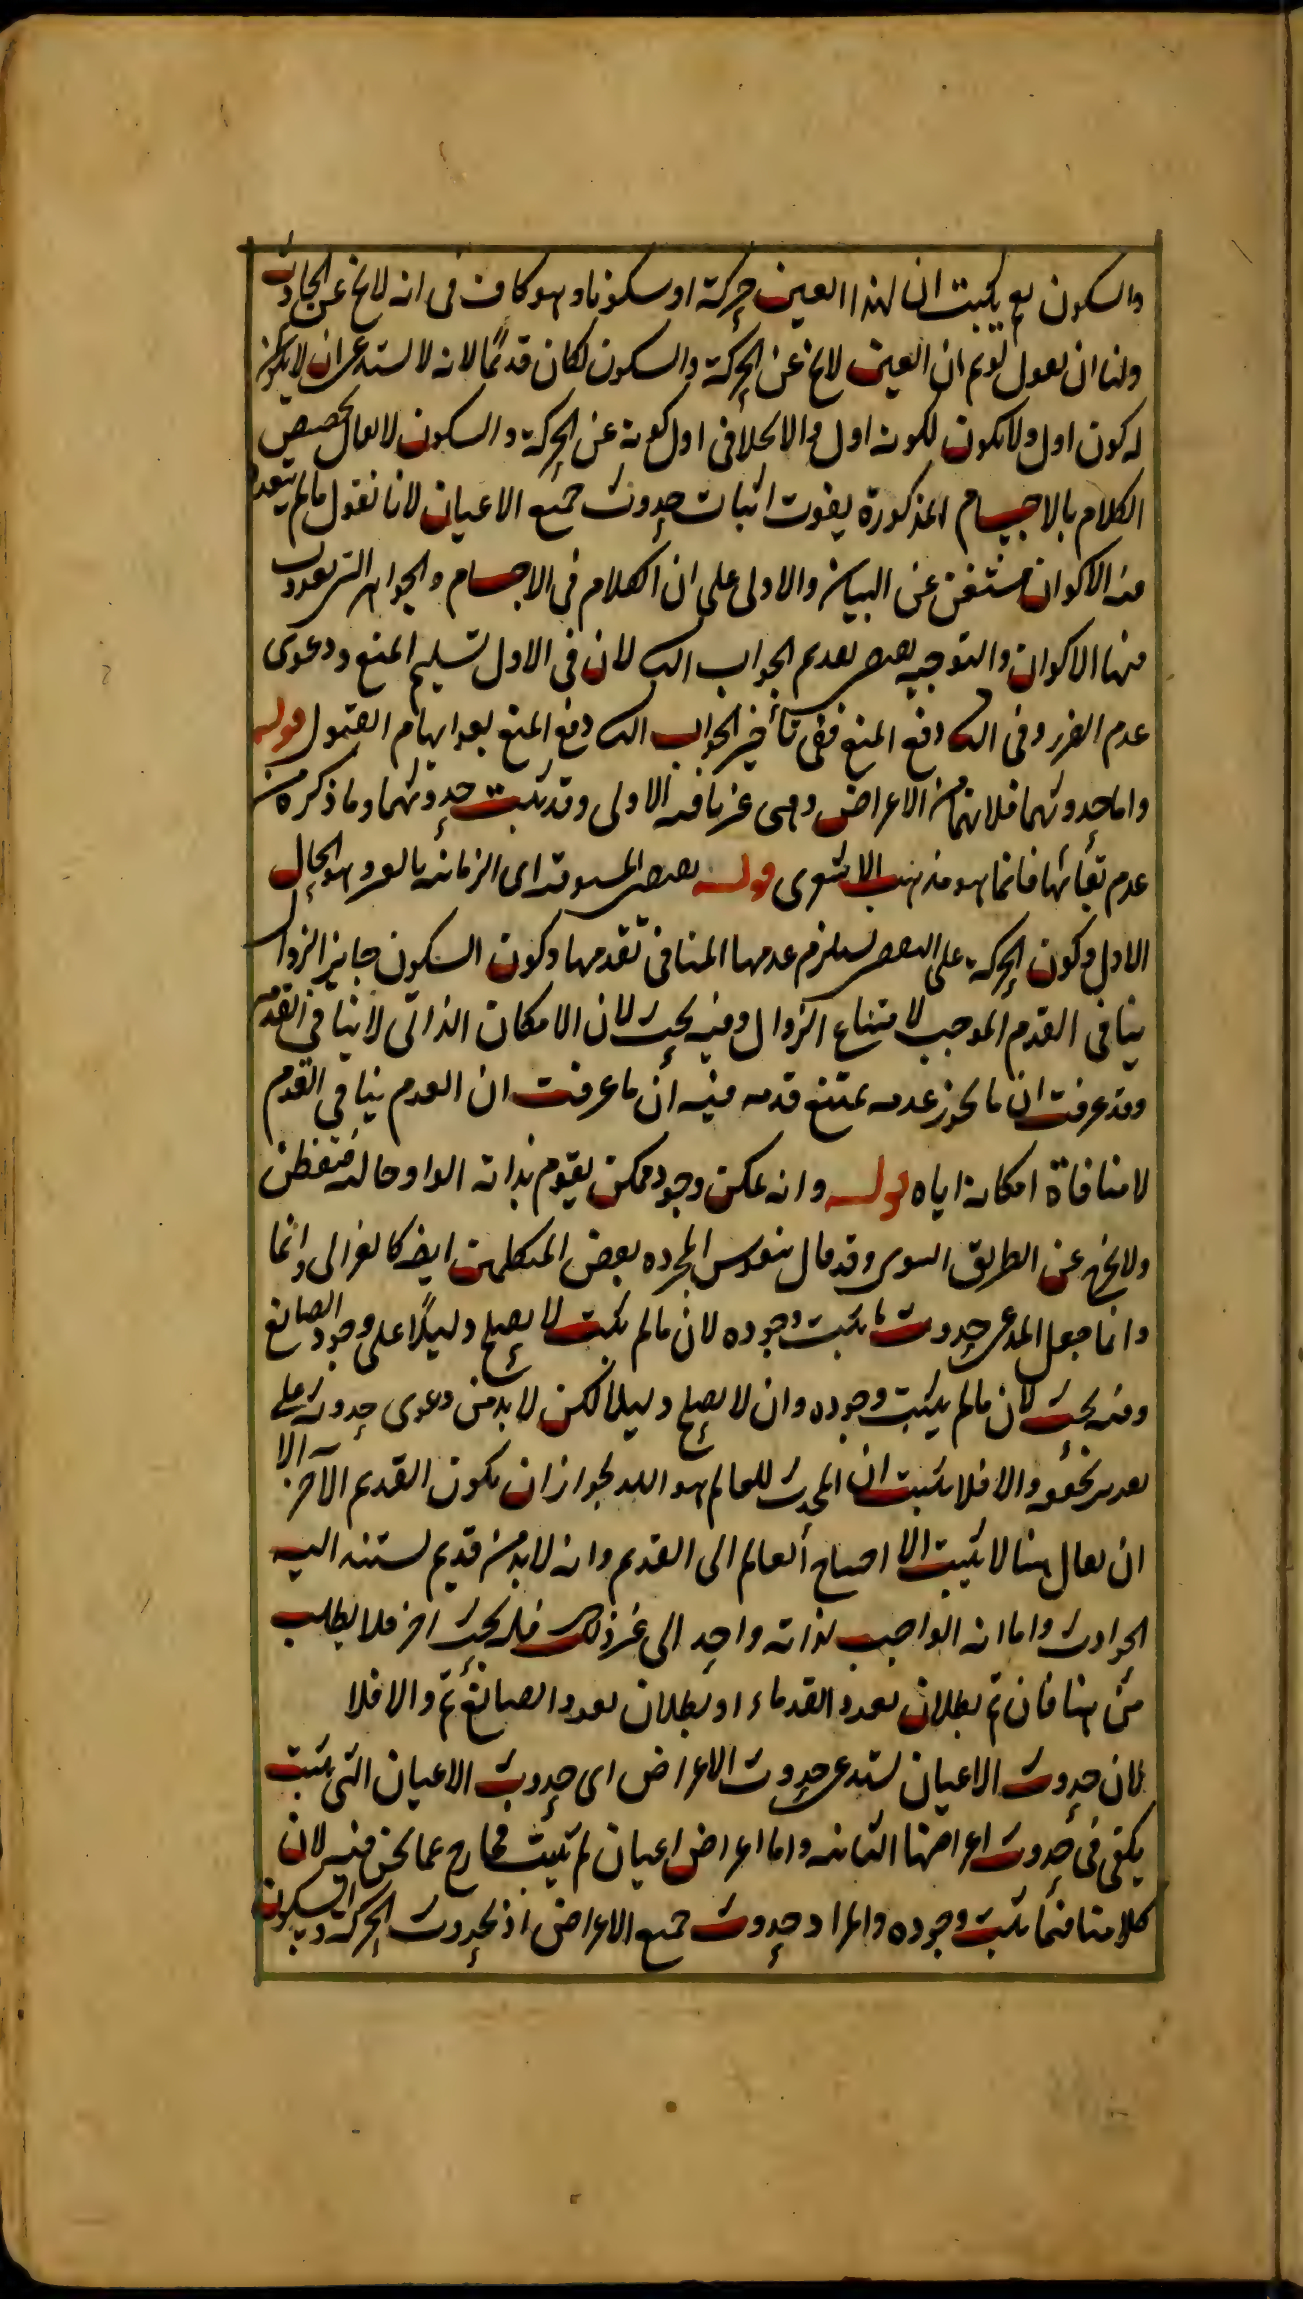 والسكون لم يثبت ان لهذا العين حركة او سكونا وهو كاف فى انه لا يخ عن الحادث
ولنا ان نقول لو تم ان العين لا يخ عن الحركة والسكون لكان قديمًا لانه لا يستدعى ان لا يكون
له كون اول ولا يكون لكونه اول والا لخلا فى اول كونه عن الحركة والسكون لا يقال تخصيص
الكلام بالاجسام المذكورة يفوت اثبات حدوث جميع الاعيان لانا نقول ما لم يتعدد
فيه الاكوان مستغن عن البيان والاولى على ان الكلام فى الاجسام والجواهر التى تعددت
فيها الاكوان والتوجيه يقتضى تقديم الجواب الثا لان فى الاول تسليم المنع ودعوى
عدم الضرر وفى الثا دفع المنع ففى تأخير الجواب الثا دفع المنع بعد ايهام القبول قوله
واما حدوثهما فلانهما من الاعراض وهى غير باقية الاولى وقد يثبت حدوثهما وما ذكره من
عدم بقائها فانما هو مذهب الاشعرى قوله يقتضى المسبوقية اى الزمانية بالغير وهو الحال
الاول وكون الحركة على التقضى يستلزم عدمها المنافى تقدمها وكون السكون جايز الزوال
ينافى القدم الموجب لامتناع الزوال وفيه بحث لان الامكان الذاتى لا ينافى القدم
وقد عرفت ان ما يجوز عدمه يمتنع قدمه فيه ان ما عرفت ان العدم ينافى القدم
لا منافاة امكانه اياه قوله وانه يمكن وجود ممكن يقوم بذاته الواو حالية فتفطن
ولا تخرج عن الطريق السوى وقد قال بنفوس المجرده بعض المتكلمين ايض كالغزالى وانما
وانما جعل المدعى حدوث ما يثبت وجوده لان ما لم يثبت لا يصلح دليلًا على وجود الصانع
وفيه بحث لان ما لم يثبت وجوده وان لا يصلح دليلا لكن لا بد من دعوى حدوثه على
تقدير تحققه والا فلا يثبت ان المحدث للعالم هو الله لجواز ان يكون القديم الآخر الا
ان يقال هنا لا يثبت الا احتياج العالم الى القديم وانه لا بد من قديم يستند اليه
الحوادث واما انه الواجب لذاته واحد الى غير ذلك فله بحث اخر فلا يطلب
من هنا فان تم بطلان تعدد القدماء او بطلان تعدد الصانع تم والا فلا
لان حدوث الاعيان يستدعى حدوث الاعراض اى حدوث الاعيان التى يثبت
يكفى فى حدوث اعراضها الثابتة واما اعراض اعيان لم تثبت فخارج عما نحن فيه لان
كلامنا فيما يثبت وجوده والمراد حدوث جميع الاعراض اذ لحدوث الحركة والسكون